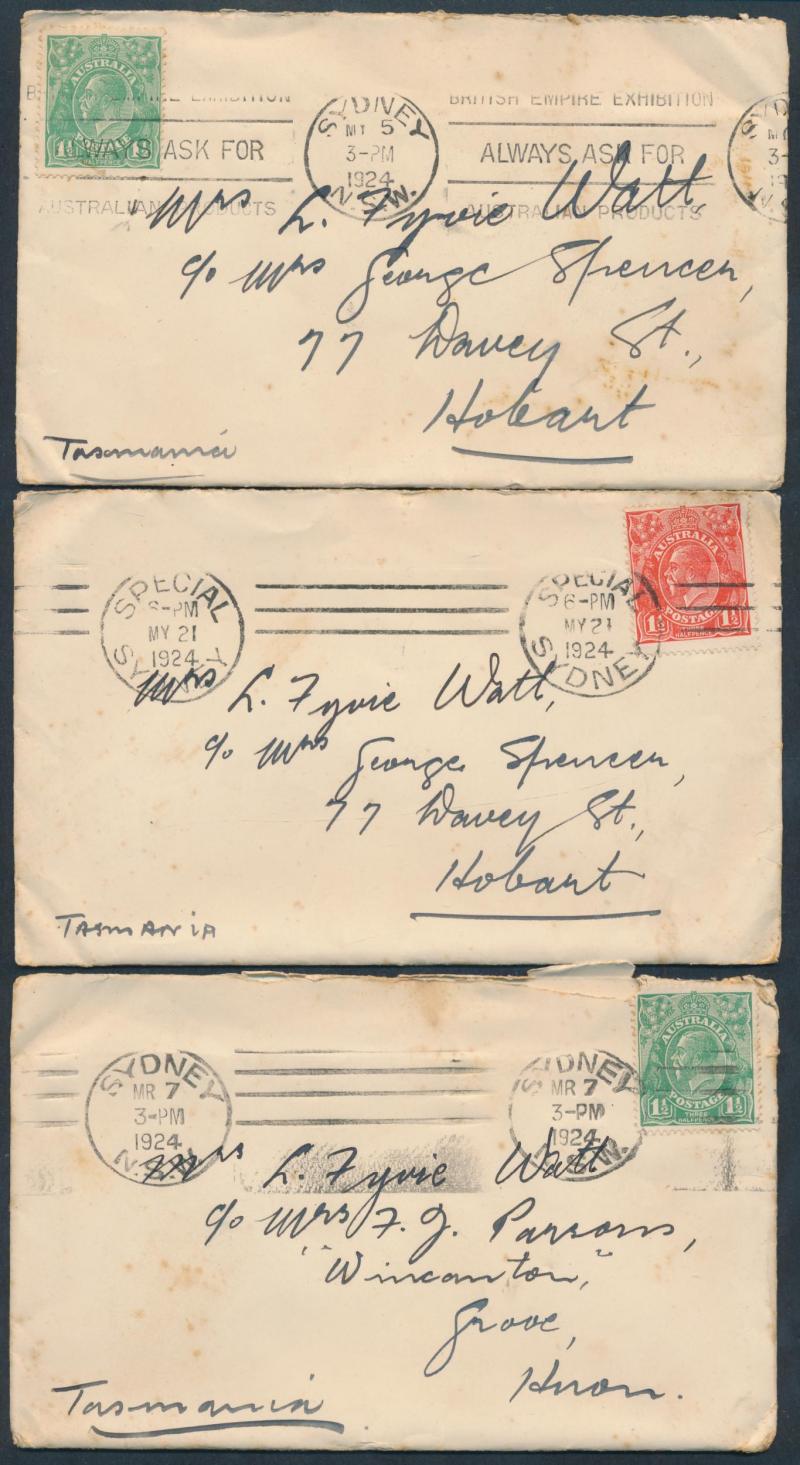 AUSTRALIA
POSTAGE
1½ 1½
HALFPENCE
BRITISH EMPIRE EXHIBITION
ALWAYS ASK FOR
AUSTRALIAN PRODUCTS
SYDNEY
MY 5
3-PM
1924
N.S.W.
BRITISH EMPIRE EXHIBITION
ALWAYS ASK FOR
AUSTRALIAN PRODUCTS
Mrs L. Fyvie Watt,
c/o Mrs George Spencer,
77 Davey St.,
Hobart
Tasmania
SPECIAL
6-PM
MY 21
1924
SYDNEY
SPECIAL
6-PM
MY 21
1924
SYDNEY
AUSTRALIA
POSTAGE
1½ 1½
THREE
HALFPENCE
Mrs L. Fyvie Watt,
c/o Mrs George Spencer,
77 Davey St.,
Hobart
TASMANIA
SYDNEY
MR 7
3-PM
1924
N.S.W.
SYDNEY
MR 7
3-PM
1924
N.S.W.
AUSTRALIA
POSTAGE
1½ 1½
THREE
HALFPENCE
Mrs L. Fyvie Watt
c/o Mrs F. J. Parsons,
"Wincanton,"
Grove,
Huon.
Tasmania